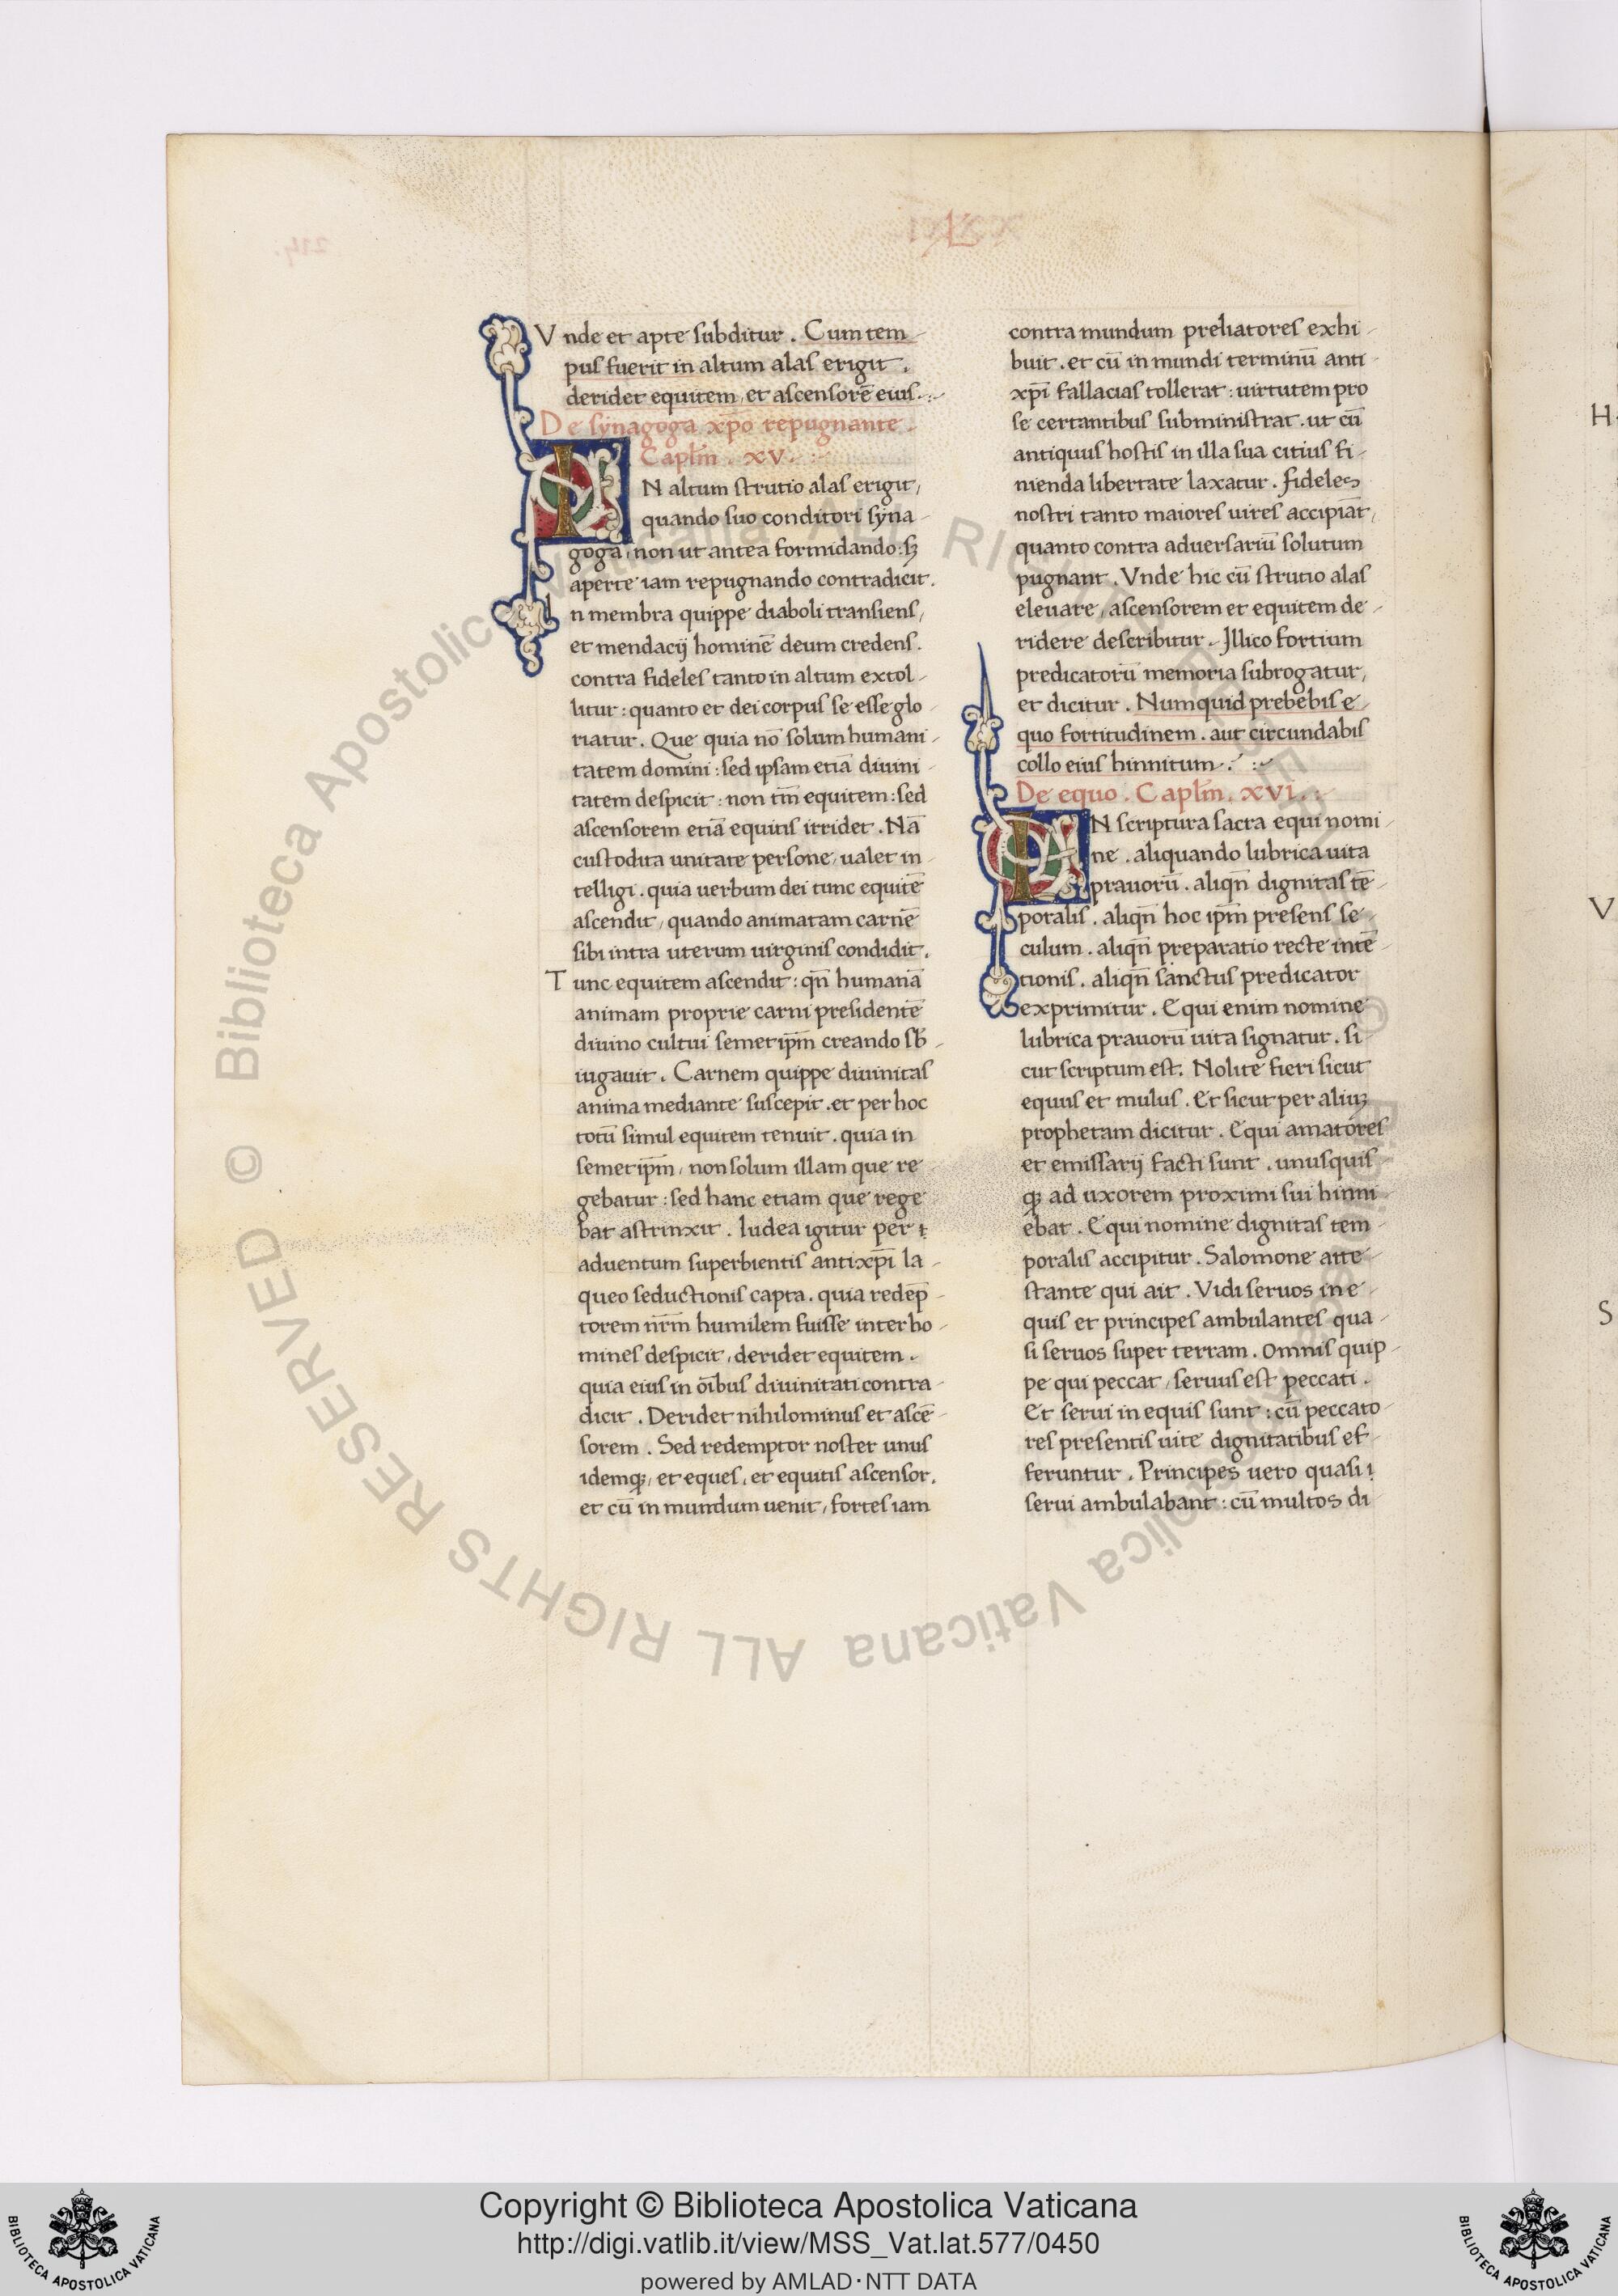 Vnde et apte subditur. Cum tem-
pus fuerit in altum alas erigit.
deridet equitem, et ascensorē eius.
De synagoga xp̄o repugnante.
Caplm̄. xv.
IN altum strutio alas erigit,
quando suo conditori syna-
goga, non ut antea formidando: sꝫ
aperte iam repugnando contradicit.
In membra quippe diaboli transiens,
et mendacij hominē deum credens.
contra fideles tanto in altum extol-
litur: quanto et dei corpus se esse glo-
riatur. Que quia nō solum humani-
tatem domini: sed ipsam etiā diuini-
tatem despicit: non tm̄ equitem: sed
ascensorem etiā equitis irridet. Nā
custodita unitate persone, ualet in-
telligi. quia uerbum dei tunc equitē
ascendit, quando animatam carnē
sibi intra uterum uirginis condidit.
Tunc equitem ascendit: qn̄ humanā
animam proprie carni presidentē
diuino cultui semetip̄m creando sƀ-
iugauit. Carnem quippe diuinitas
anima mediante suscepit. et per hoc
totū simul equitem tenuit. quia in
semetip̄m, non solum illam que re-
gebatur: sed hanc etiam que rege-
bat astrinxit. Iudea igitur per
aduentum superbientis antixp̄i la-
queo seductionis capta. quia redēp-
torem nr̄m humilem fuisse inter ho-
mines despicit, deridet equitem.
quia eius in oībus diuinitati contra-
dicit. Deridet nihilominus et ascē-
sorem. Sed redemptor noster unus
idemqꝫ, et eques, et equitis ascensor.
et cū in mundum uenit, fortes iam
contra mundum preliatores exhi-
buit. et cū in mundi terminū anti-
xp̄i fallacias tollerat: uirtutem pro
se certantibus subministrat. ut cū
antiquus hostis in illa sua citius fi-
nienda libertate laxatur. fideles
nostri tanto maiores uires accipiāt,
quanto contra aduersariū solutum
pugnant. Vnde hic cū strutio alas
eleuare, ascensorem et equitem de-
ridere describitur. Illico fortium
predicatorū memoria subrogatur,
et dicitur. Numquid prebebis e-
quo fortitudinem. aut circundabis
collo eius hinnitum.
De equo. Caplm̄. xvi.
IN scriptura sacra equi nomi-
ne. aliquando lubrica uita
prauorū. aliqn̄ dignitas tē-
poralis. aliqn̄ hoc ip̄m presens se-
culum. aliqn̄ preparatio recte intē-
tionis. aliqn̄ sanctus predicator
exprimitur. Equi enim nomine
lubrica prauorū uita signatur. si-
cut scriptum est. Nolite fieri sicut
equus et mulus. Et sicut per aliuꝫ
prophetam dicitur. Equi amatores
et emissarij facti sunt. unusquis-
qꝫ ad uxorem proximi sui hinni-
ebat. Equi nomine dignitas tem-
poralis accipitur. Salomone atte-
stante qui ait. Vidi seruos in e-
quis et principes ambulantes qua-
si seruos super terram. Omnis quip-
pe qui peccat, seruus est peccati.
Et serui in equis sunt: cū peccato-
res presentis uite dignitatibus ef-
feruntur. Principes uero quasi
serui ambulabant: cū multos di-
H
V
S
Copyright © Biblioteca Apostolica Vaticana
http://digi.vatlib.it/view/MSS_Vat.lat.577/0450
powered by AMLAD·NTT DATA
BIBLIOTECA APOSTOLICA VATICANA
BIBLIOTECA APOSTOLICA VATICANA
© Biblioteca Apostolica Vaticana ALL RIGHTS RESERVED
© Biblioteca Apostolica Vaticana ALL RIGHTS RESERVED